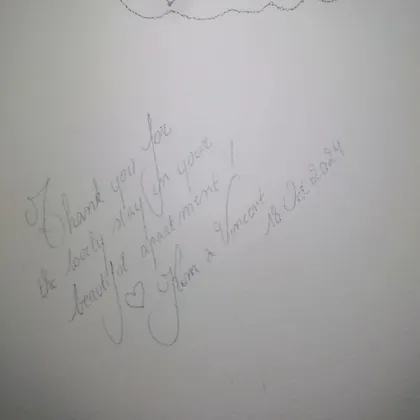 Thank you for
the lovely stay in your
beautiful apartment!
♡ & Vincent 18. Oct 2024